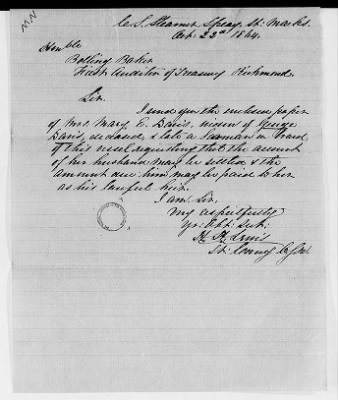 C. S. Steamer Spray St. Marks.
Oct. 22d 1864.
Honble
Bolling Baker
First Auditor of Treasury Richmond.
Sir.
I send you the enclose paper
of Mrs Mary E. Davis, widow of George
Davis, deceased & late a Seaman on board
of this vessel, requesting that the account
of her husband may be settled & the
amount due him may be paid to her
as his lawful heir.
I am Sir,
Very respectfully
Yr. Obt. Svt.
H. H. Lewis
Lt.